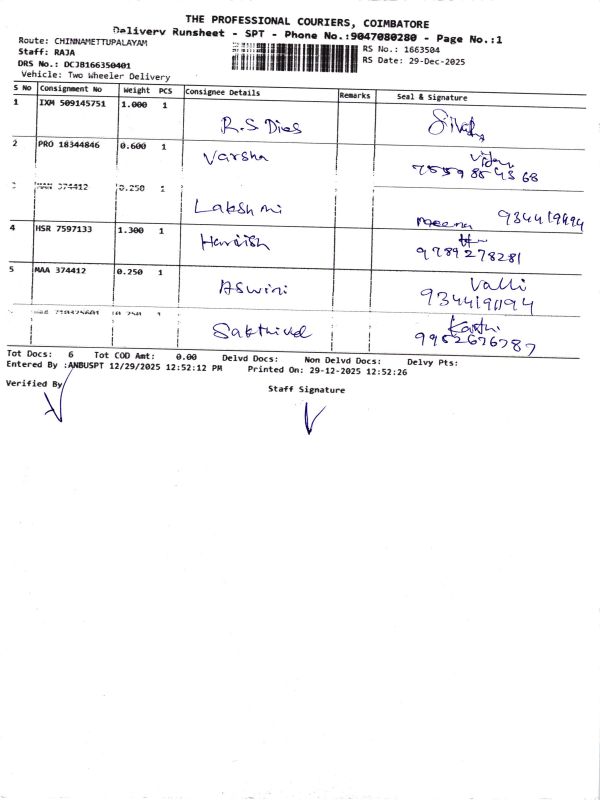 THE PROFESSIONAL COURIERS, COIMBATORE
Delivery Runsheet - SPT - Phone No.:9047080280 - Page No.:1
Route: CHINNAMETTUPALAYAM
Staff: RAJA
DRS No.: DCJB166350401
Vehicle: Two Wheeler Delivery
RS No.: 1663504
RS Date: 29-Dec-2025
S No Consignment No Weight PCS Consignee Details Remarks Seal & Signature
1 IXM 509145751 1.000 1 R.S Dies
2 PRO 18344846 0.600 1 Varsha
374412 0.250 1 Lakshmi Meena
4 HSR 7597133 1.300 1 Harish 9789278281
5 MAA 374412 0.250 1 Aswini Valli
9344191194
0.250 1 Sakthivel Karthi
9952676787
Tot Docs: 6 Tot COD Amt: 0.00 Delvd Docs: Non Delvd Docs: Delvy Pts:
Entered By :ANBUSPT 12/29/2025 12:52:12 PM Printed On: 29-12-2025 12:52:26
Verified By
Staff Signature